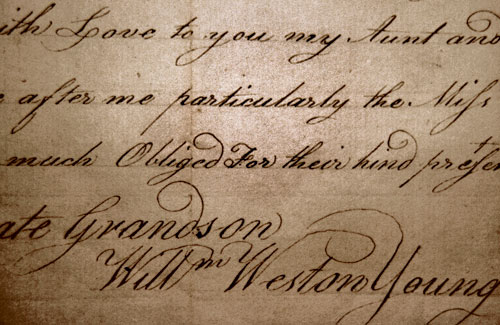 ith Love to you my Aunt and
e after me particularly the Miſs
much Obliged For their kind preſen
ate Grandson
Will^m Weston Young